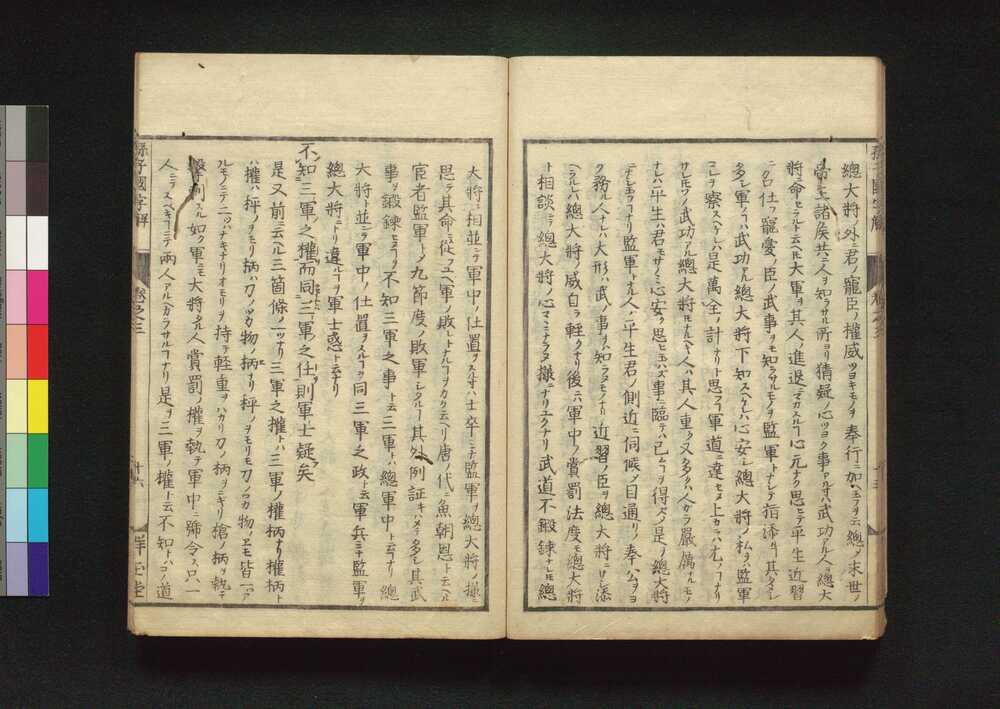 總大將ノ外ニ君ノ寵臣ノ權威ツヨキモノヲ奉行ニ加ルヲ云總シテ末世ノ
帝王諸矦共ニ人ヲ知ラサル所ヨリ猜疑ノ心ツヨク事アルオハ武功アル人ヲ總大
將ニ命セラルト云ヘトモ大軍ヲ其人ノ進退ニマカスルヿ心元ナク思ヒテ平生近習
ニ召仕フ寵愛ノ臣ノ武事ヲモ知ラサルモノヲ監軍トナシテ指添ルナリ其タメシ
多シ軍ノヿハ武功アル總大將下知スヘケレハ心安シ總大將ノ私ヲハ監軍
コレヲ察スヘケレハ是萬全ノ計ナリト思フヿ軍道ニ達セヌ上カラハ尤ノヿナリ
サレトモソノ武功アル總大將モ其人重ク又多クハ人カラ嚴厲ナルモノ
ナレハ平生ハ君モサノミ心安ク思ヒ玉ハズ事ニ臨テハ已ヿヲ得ズ是ヲ總大將
トシ玉フナリ監軍トナル人ハ平生君ノ側近ニ伺候シ目通リノ奉公ヲヨ
ク務ル人ナレハ大形ハ武ノ事ヲ知ラヌモノナリ近習ノ臣ヲ總大將ニサシ添
ラルレハ總大將ノ威自ラ軽クナリ後ニハ軍中ノ賞罰法度モ總大將
ト相談シテ總大將ノ心マヽニナラヌ様ニナリユクナリ武道不鍛錬ナレトモ總
大將ト相並ニテ軍中ノ仕置ヲスルオハ士卒ミナ監軍ヲ總大將ノ様ニ
思テ其命ニ從フユヘ軍ノ敗レトナルヿヲカク云ヘリ唐ノ代ニ魚朝恩ト云ヘル
宦者監軍トシテ九節度ノ敗軍シタルヿ其外例証キハメテ多シ其武
事ヲ鍛錬セサルヿヲ不知三軍之事ト云三軍トハ總軍中ト云ヿナリ總
大將ト並ニテ軍中ノ仕置ヲスルヿヲ同三軍之政ト云軍兵ミナ監軍ヲ
總大將ニトリ違ルヿヲ軍士惑ト云ナリ
不知三軍之權而同三軍之任則軍士疑矣
是又前ニ云ヘル三箇條ノ一ツナリ三軍之權トハ三軍ノ權柄ナリ權柄ト
ハ權ハ秤ノヲモリ柄ハ刀ノツカ物ノ柄ナリ秤ノヲモリモ刀ノツカ物ノエモ皆一ツア
ルモノニテ二ツハナキナリオモリヲ持テ軽重ヲハカリ刀ノ柄ヲニギリ槍ノ柄ヲ執テ
スル如ク軍ニモ大將タル人賞罰ノ權ヲ執テ軍中ニ號令スヿ只一
人ニテスヘキヿニテ兩人アルヘカラサルヿナリ是ヲ三軍ノ權ト云不知トハコノ道
孫子國字解
卷之三
十六